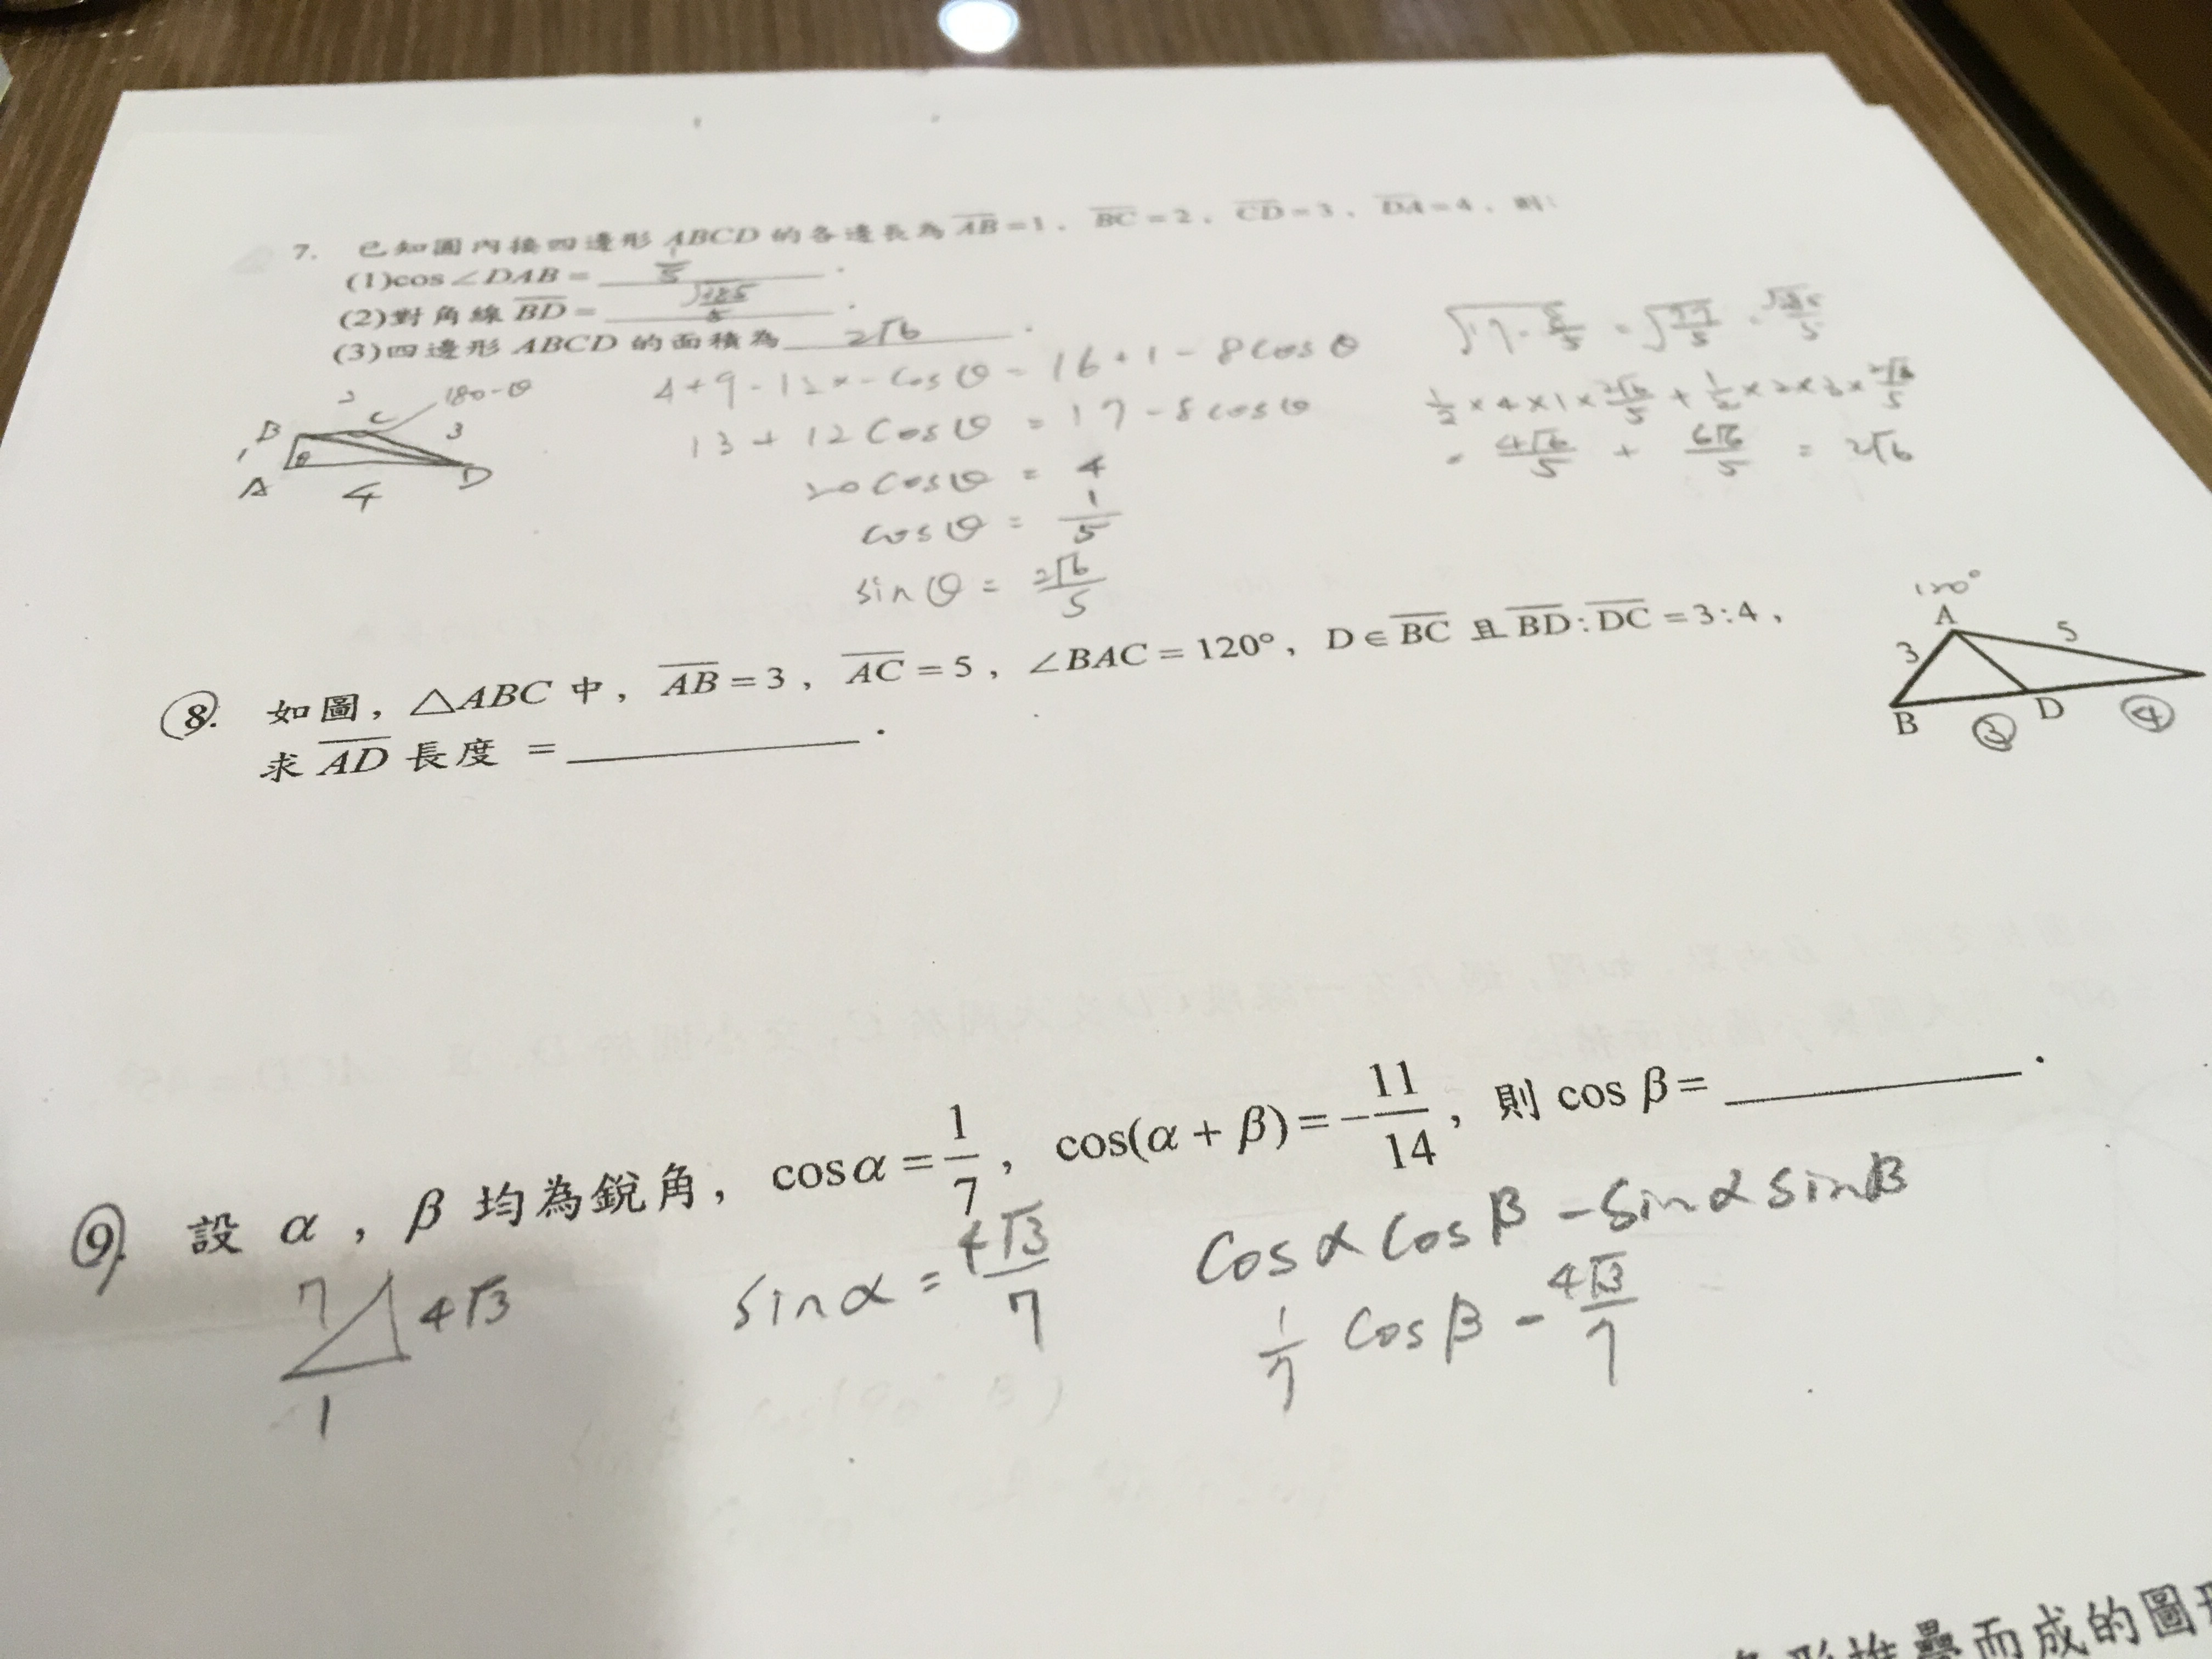 7. 已知圓內接四邊形 ABCD 的各邊長為 AB=1, BC=2, CD=3, DA=4, 則:
(1)cos∠DAB= 1/5 .
(2)對角線 BD= √385/5 .
(3)四邊形 ABCD 的面積為 2√6 .
2 C 180-θ
B 3
1 θ
A 4 D
4+9-12×-cosθ = 16+1-8cosθ
13+12cosθ = 17-8cosθ
20cosθ = 4
cosθ = 1/5
sinθ = 2√6/5
√17-8/5 = √77/5 = √385/5
1/2×4×1×2√6/5 + 1/2×2×3×2√6/5
= 4√6/5 + 6√6/5 = 2√6
8. 如圖, △ABC 中, AB=3, AC=5, ∠BAC=120°, D∈BC 且 BD:DC=3:4,
求 AD 長度 = .
120°
A
3 5
B ③ D ④
9. 設 α, β 均為銳角, cosα=1/7, cos(α+β)=-11/14, 則 cos β= .
7 4√3
1
sinα = 4√3/7
cosαcosβ-sinαsinβ
1/7 cosβ - 4√3/7
形堆疊而成的圖